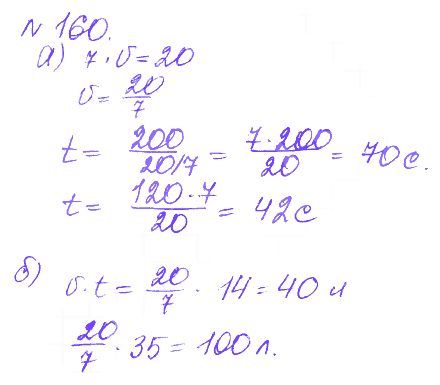 № 160.
а) 7 · v = 20
v = 20/7
t = 200/(20/7) = (7 · 200)/20 = 70 с.
t = (120 · 7)/20 = 42 с
б) v · t = 20/7 · 14 = 40 л
20/7 · 35 = 100 л.